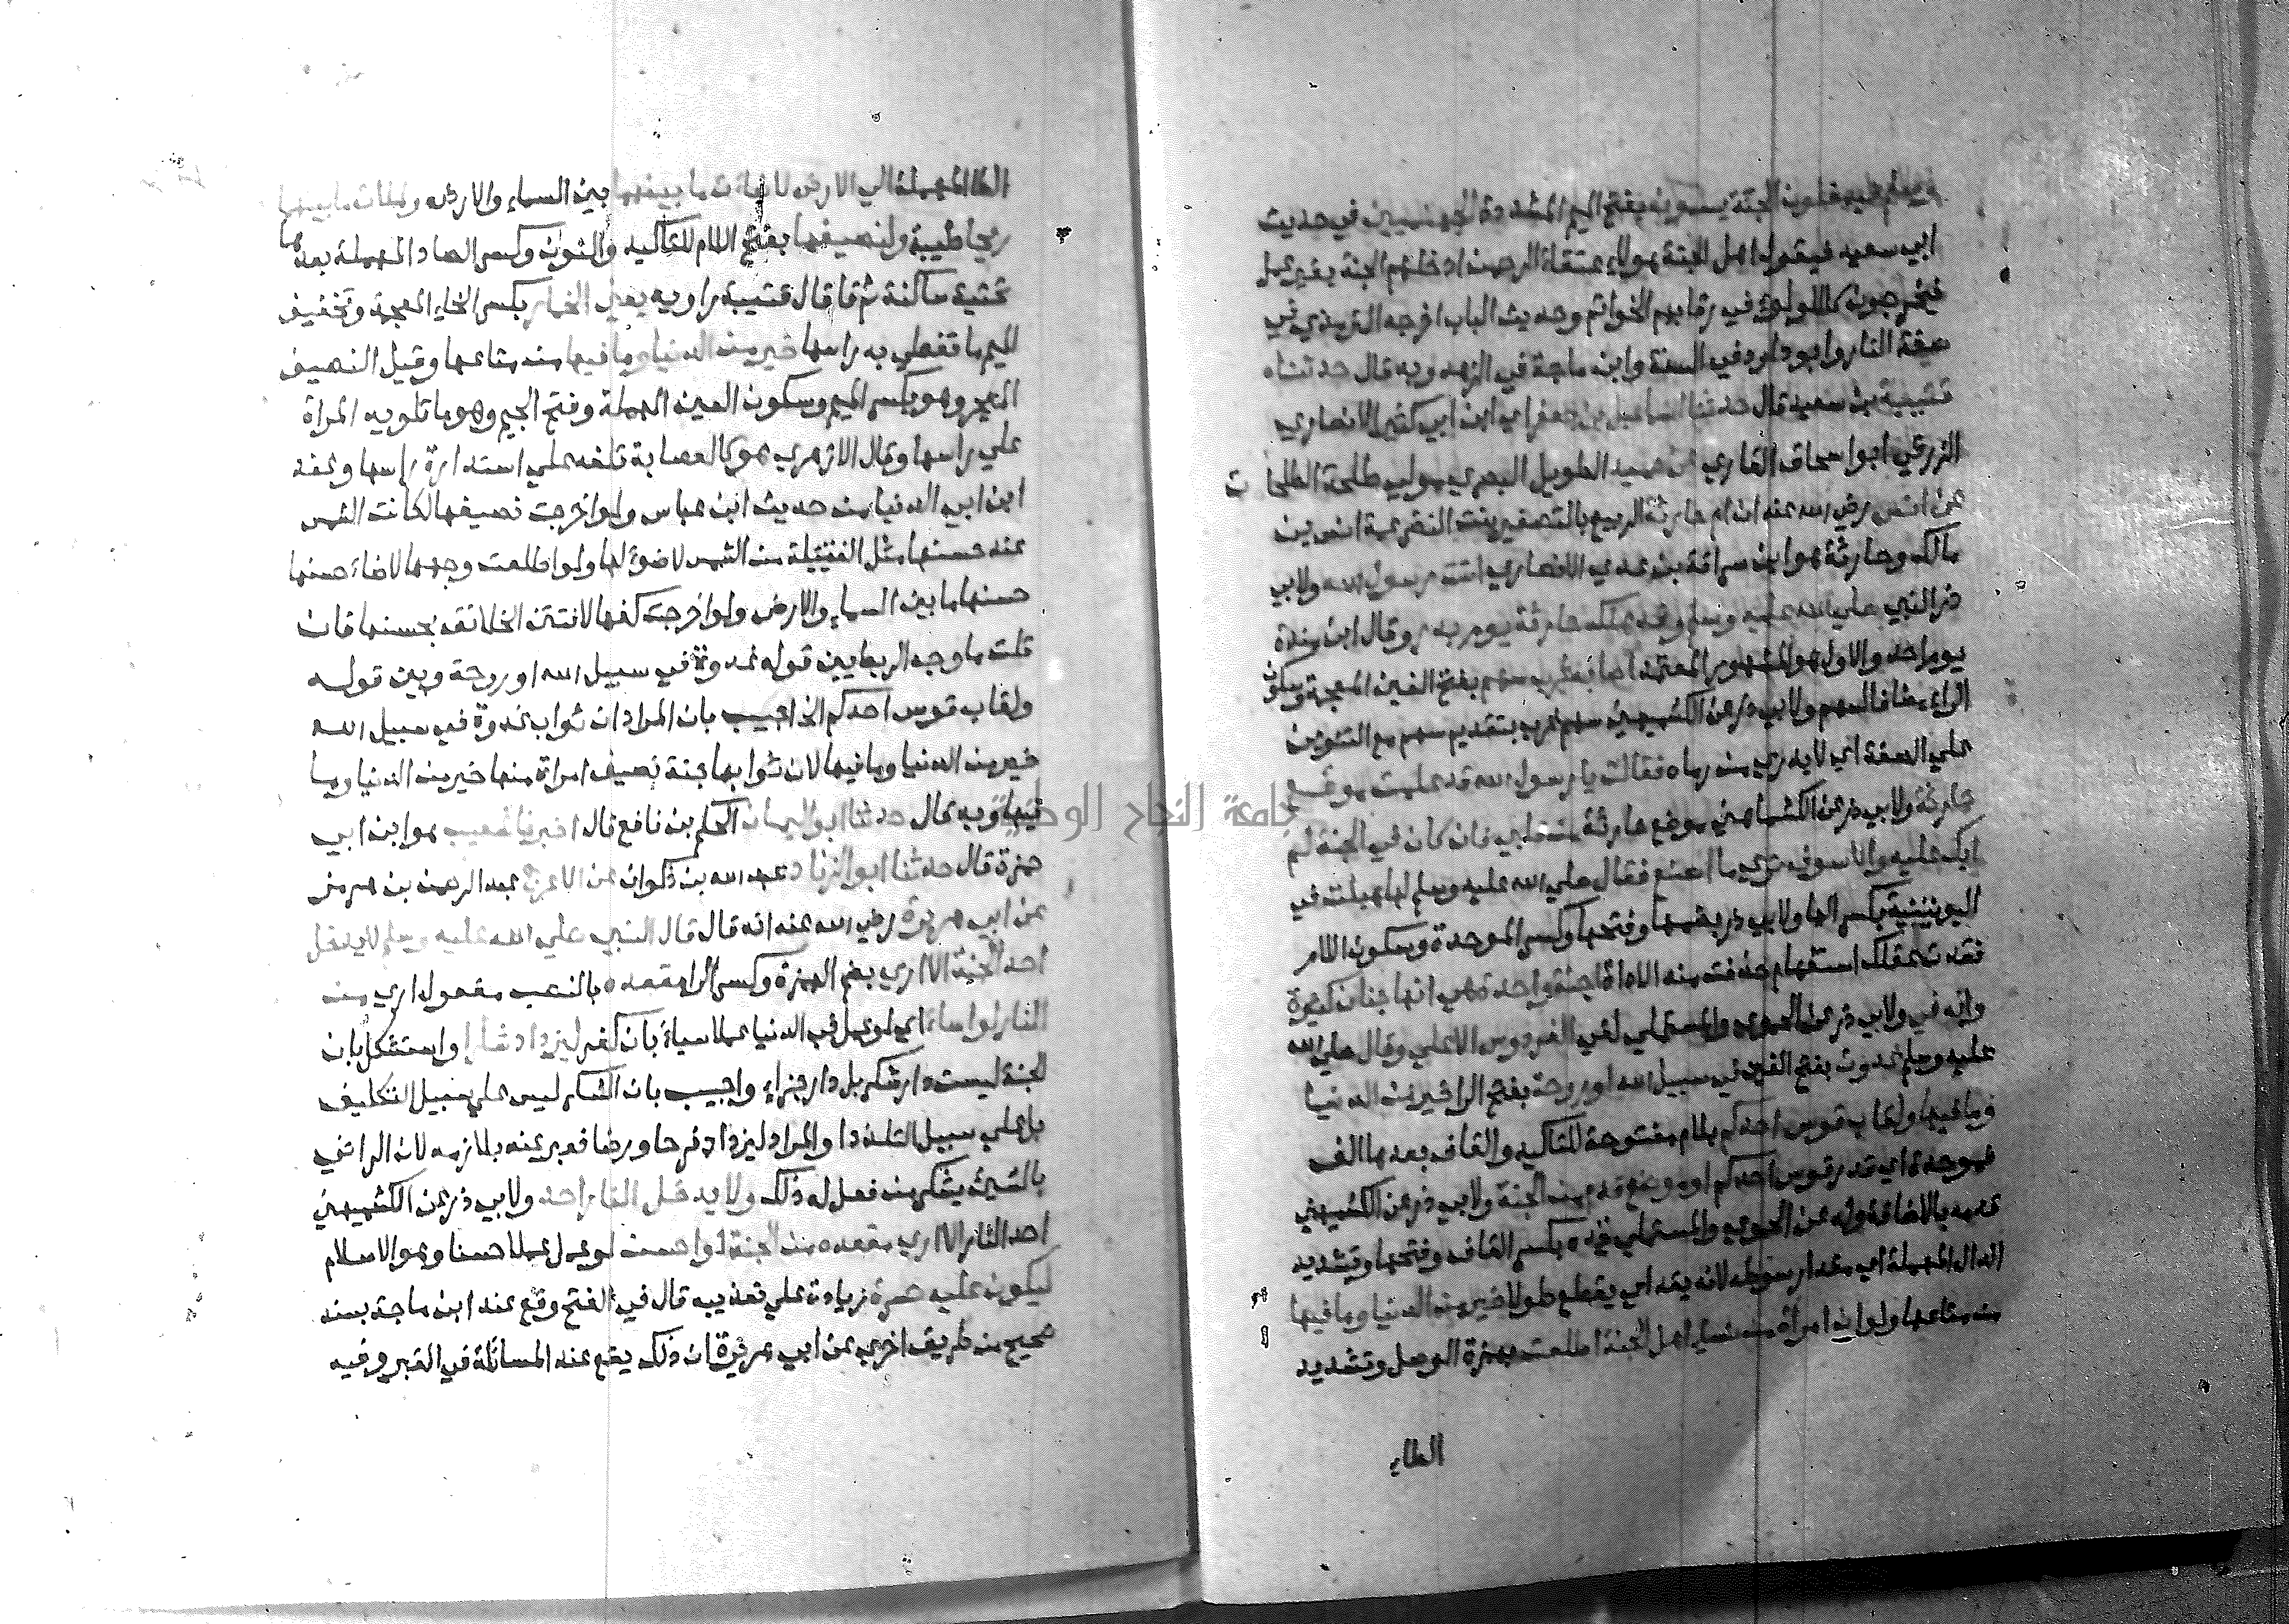 وسلم فيدخلون الجنة يسمون بفتح الميم المشددة الجهنميين في حديث
ابي سعيد فيقول اهل الجنة هولاء عتقاء الرحمن ادخلهم الجنة بغير عمل
فيخرجون كاللولوء في رقابهم الخواتم وحديث الباب اخرجه الترمذي في
صفة النار وابو داود في السنة وابن ماجة في الزهد وبه قال حدثناه
قتيبة بن سعيد قال حدثنا اسماعيل بن جعفر اي ابن ابي كثير الانصاري
الزرقي ابو اسحاق القاري عن حميد الطويل البصري مولي طلحة الطلحات
عن انس رضي الله عنه ان ام حارثة الربيع بالتصغير بنت النضر عمة انس بن
مالك وحارثة هو ابن سراقة بن عدي الانصاري اتت رسول الله ولابي
ذر النبي صلي الله عليه وسلم وقد هلك حارثة يوم بدر وقال ابن مندة
يوم احد والاول هو المشهور المعتمد اصابه غرب سهم بفتح الغين المعجمة وسكون
الراء مضافا لسهم ولابي ذر عن الكشميهني سهم غرب بتقديم سهم مع التنوين
علي الصفة اي لا يدري من رماه فقالت يا رسول الله قد علمت موقع
حارثة ولابي ذر عن الكشميهني موضع حارثة من قلبي فان كان في الجنة لم
ابك عليه والا سوف تري ما اصنع فقال صلي الله عليه وسلم لها هبلت في
اليونينية بكسر الها ولابي ذر بضمها وفتحها وكسر الموحدة وسكون اللام
فقدت عقلك استفهام حذفت منه الاداة اجنة واحدة هي انها جنان كثيرة
وانه في ولابي ذر عن الحموي والمستملي لفي الفردوس الاعلي وقال صلي الله
عليه وسلم غدوة بفتح الغين في سبيل الله او روحة بفتح الرا خير من الدنيا
وما فيها ولقاب قوس احدكم بلام مفتوحة للتاكيد والقاف بعدها الف
فموحدة اي قدر قوس احدكم او موضع قدم من الجنة ولابي ذر عن الكشميهني
قدمه بالاضافة وله عن الحموي والمستملي قده بكسر القاف وفتحها وتشديد
الدال المهملة اي مقدار سوطه لانه يقد اي يقطع طولا خير من الدنيا وما فيها
من متاعها ولو ان امراة من نساء اهل الجنة اطلعت بهمزة الوصل وتشديد
الطاء
الطا المهملة الي الارض لاضات ما بينهما بين السماء والارض ولملات ما بينهما
ريحا طيبة ولنصيفها بفتح اللام للتاكيد والنون وكسر الصاد المهملة بعدها
تحتية ساكنة ثم فا قال قتيبة راويه يعني الخمار بكسر الخاء المعجمة وتخفيف
الميم ما تغطي به راسها خير من الدنيا وما فيها من متاعها وقيل النصيف
المعجر وهو بكسر الميم وسكون العين المهملة وفتح الجيم وهو ما تلويه المراة
علي راسها وقال الازهري هو كالعصابة تلفه علي استدارة راسها وعند
ابن ابي الدنيا من حديث ابن عباس ولو اخرجت نصيفها لكانت الشمس
عند حسنها مثل الفتيلة من الشمس لا ضوء لها ولو اطلعت وجهها لاضاء حسنها
حسنها ما بين السماء والارض ولو اخرجت كفها لافتتن الخلائق بحسنها فان
قلت ما وجه الربط بين قوله غدوة في سبيل الله او روحة وبين قوله
ولقاب قوس احدكم الخ اجيب بان المراد ان ثواب غدوة في سبيل الله
خير من الدنيا وما فيها لان ثوابها جنة نصيف امراة منها خير من الدنيا وما
فيها وبه قال حدثنا ابو اليمان الحكم بن نافع قال اخبرنا شعيب هو ابن ابي
حمزة قال حدثنا ابو الزناد عبد الله بن ذكوان عن الاعرج عبد الرحمن بن هرمز
عن ابي هريرة رضي الله عنه انه قال قال النبي صلي الله عليه وسلم لا يدخل
احد الجنة الا اري بضم الهمزة وكسر الرا مقعده بالنصب مفعول اري من
النار لو اساء اي لو عمل في الدنيا عملا سياء بان كفر ليزداد شكرا واستشكل بان
الجنة ليست دار شكر بل دار جزاء واجيب بان الشكر ليس علي سبيل التكليف
بل علي سبيل التلذذ او المراد ليزداد فرحا ورضا فعبر عنه بلازمه لان الراضي
بالشيء يشكر من فعل له ذلك ولا يدخل النار احد ولابي ذر عن الكشميهني
احد النار الا اري مقعده من الجنة لو احسن لو عمل عملا حسنا وهو الاسلام
ليكون عليه حسرة زيادة علي تعذيبه قال في الفتح وقع عند ابن ماجة بسند
صحيح من طريق اخري عن ابي هريرة ان ذلك يقع عند المسائلة في القبر وفيه
جامعة النجاح الوطنية